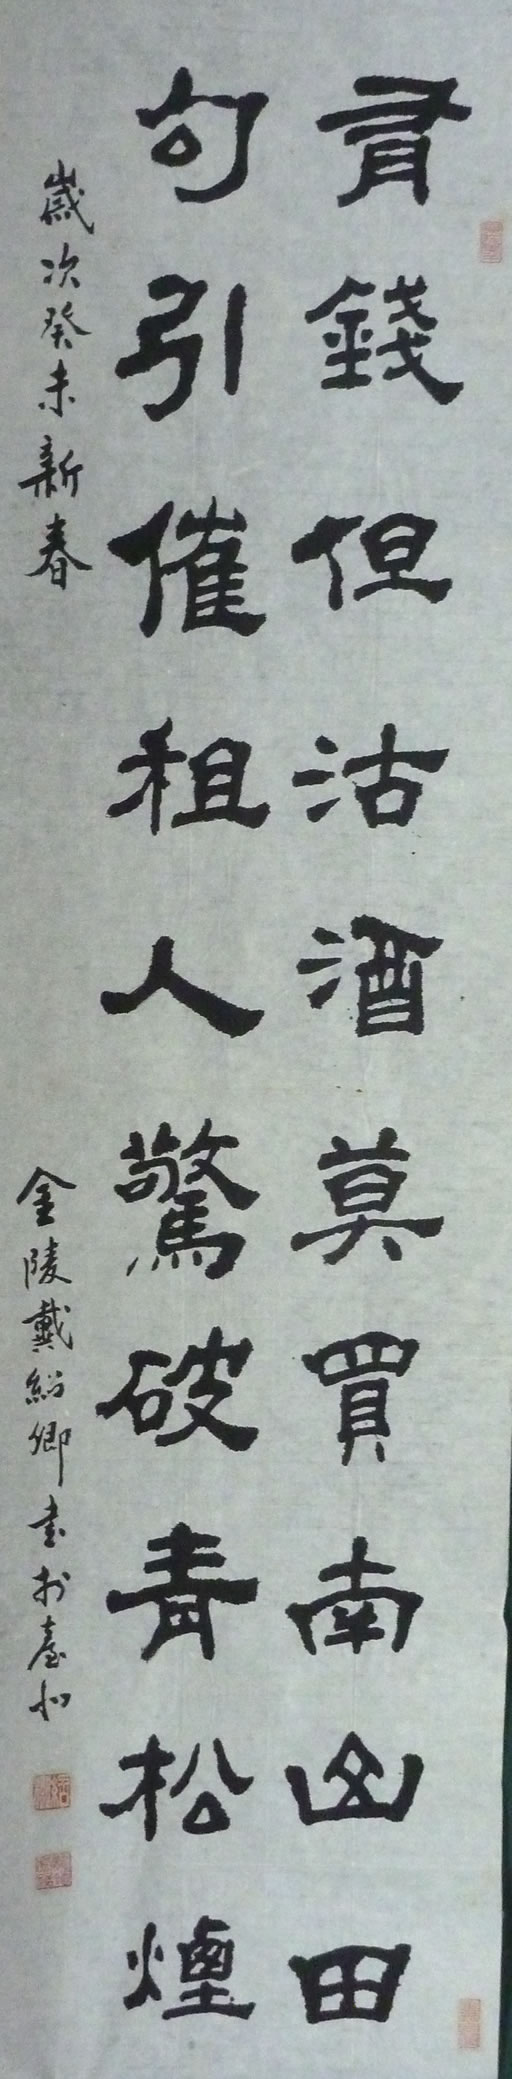 有錢但沽酒莫買南山田
句引催租人驚破青松煙
歲次癸未新春
金陵戴紹卿書於臺北